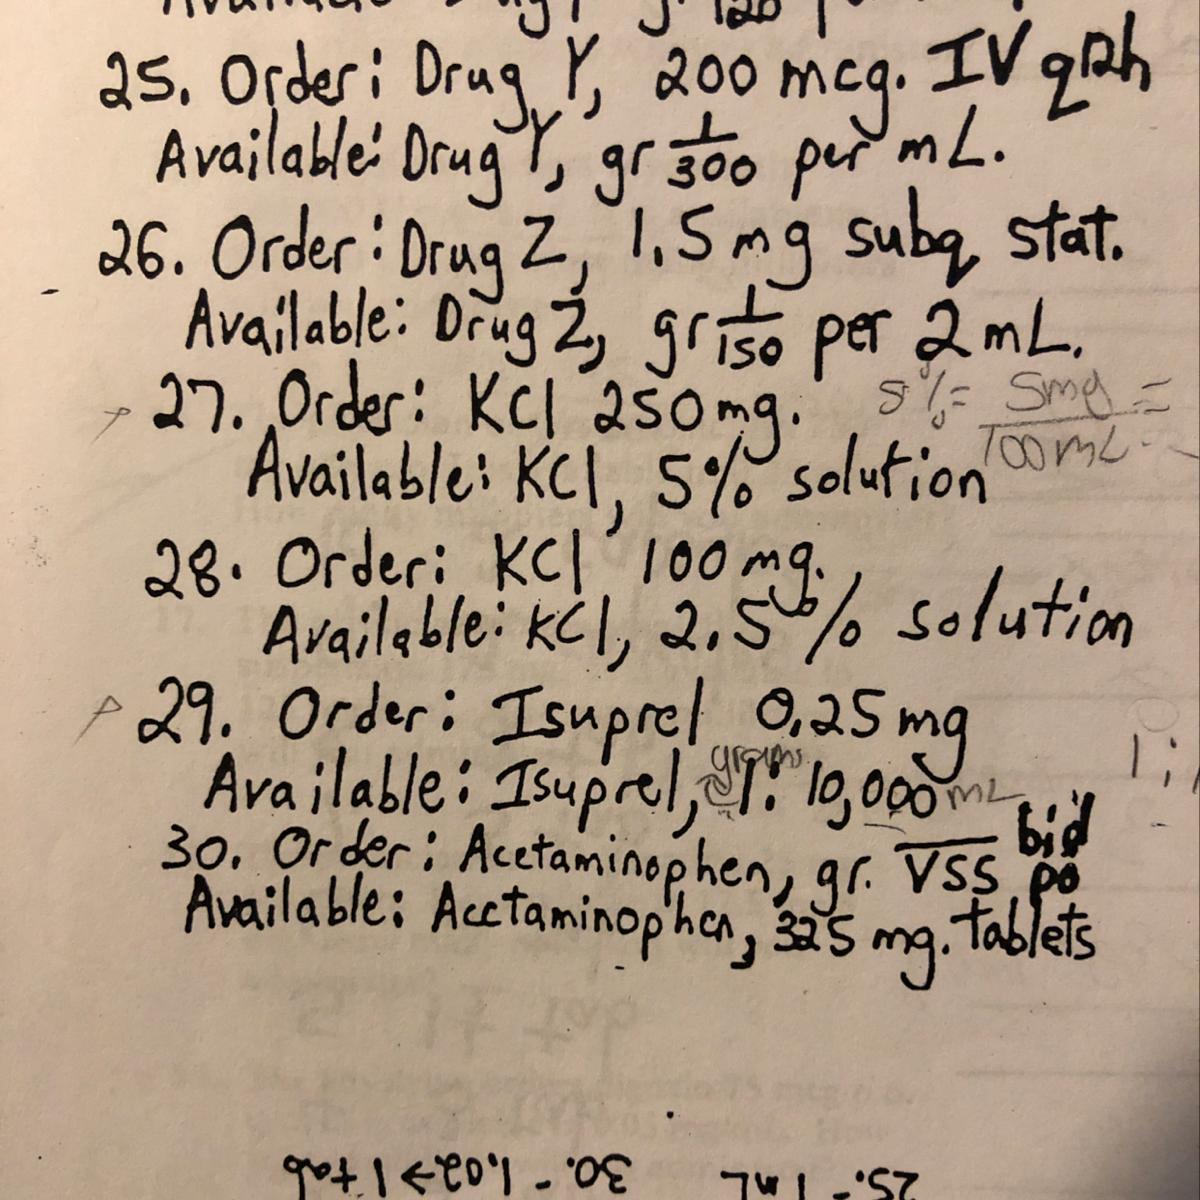 25. Order: Drug Y, 200 mcg. IV q12h
Available: Drug Y, gr 1/300 per mL.
26. Order: Drug Z, 1.5 mg subq stat.
Available: Drug Z, gr 1/150 per 2 mL.
27. Order: KCl 250 mg. 5%= 5mg/100mL =
Available: KCl, 5% solution
28. Order: KCl 100 mg.
Available: KCl, 2.5% solution
29. Order: Isuprel 0.25 mg
grams
Available: Isuprel, 1: 10,000 mL
30. Order: Acetaminophen, gr. VSS bid po
Available: Acetaminophen, 325 mg. tablets
25. - 1 mL 30. - 1.02 → 1 tab